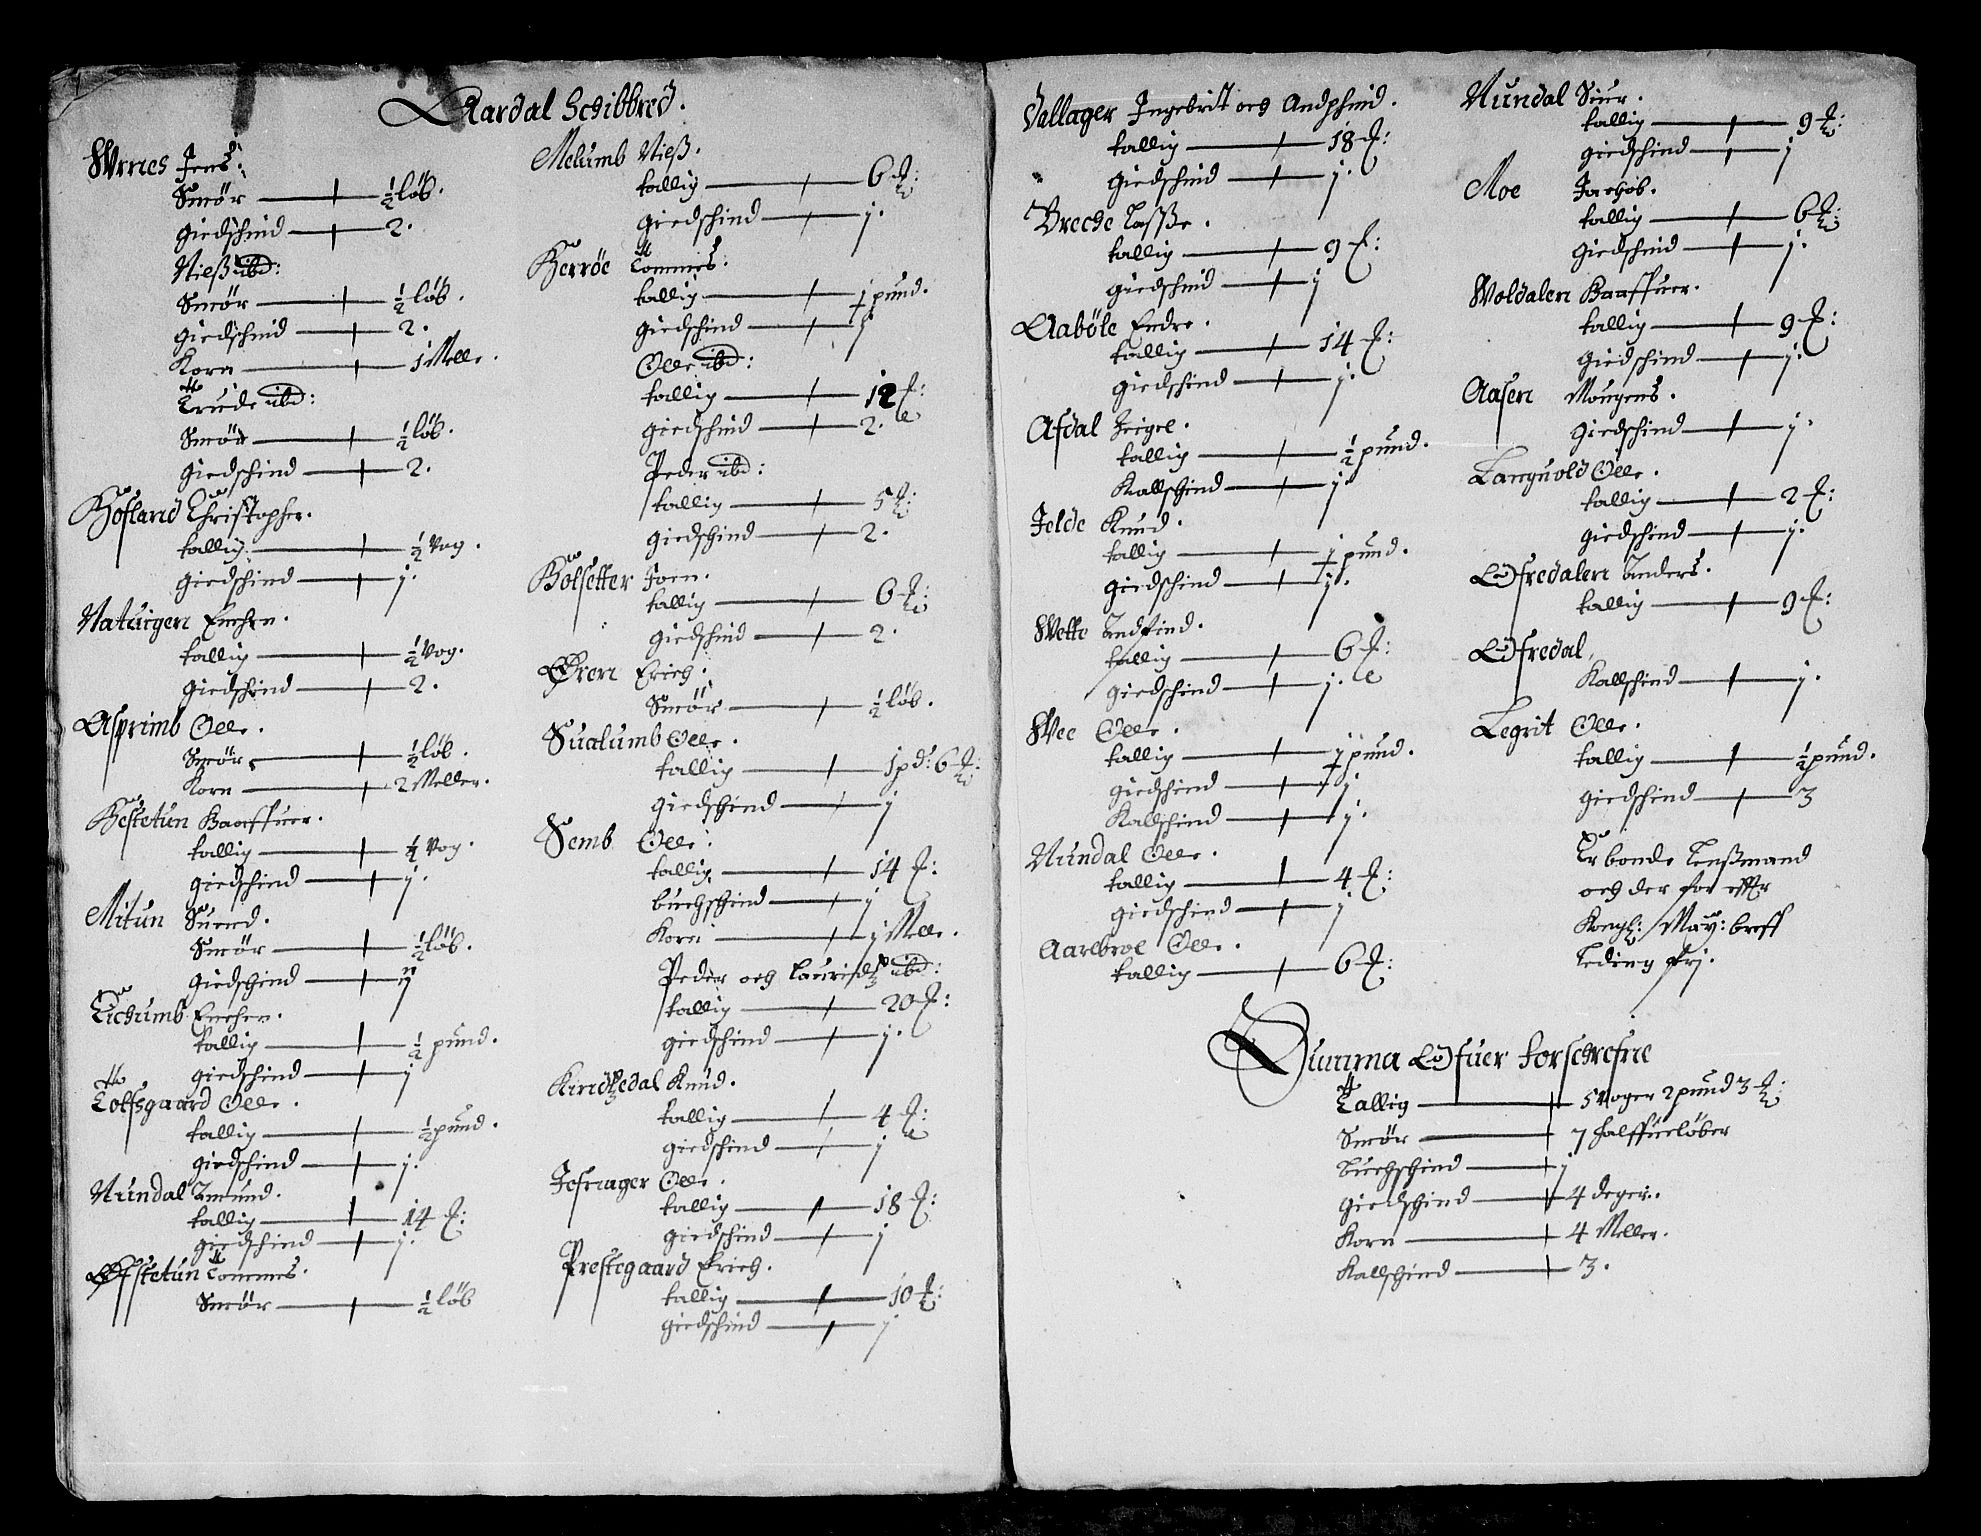 Aardal Schibbred.
Wrnes Jens:
Smör — ½ löb.
giedschind — 2.
Nielß ibd:
Smör — ½ löb.
giedschind — 2.
Korn — 1 Melle.
Trude ibd:
Smör — ½ löb.
giedschind — 2.
Hofland Christopher.
tallig — ½ Vog.
giedschind — j.
Naturgen Enchen.
tallig — ½ Vog.
giedschind — 2.
Asprimb Olle.
Smör — ½ löb.
Korn — 2 Meller.
Hestetun Haaffuer.
tallig — ½ Vog.
giedschind — j.
Mitun Suend.
Smör — ½ löb.
giedschind — ij
Lichumb Enchen.
tallig — ½ pund.
giedschind — j
Tolfsgaard Olle.
tallig — ½ pund.
giedschind — j.
Nundal Amund.
tallig — 14 ℔:
giedschind — j.
Ofstetun Tommes.
Smör — ½ löb
Melumb Nielß.
tallig — 6 ℔:
giedschind — j.
Herröe Tommes.
tallig — j pund.
giedschind — j
Olle ibd:
tallig — 12 ℔:
giedschind — 2.
Peder ibd:
tallig — 5 ℔:
giedschind — 2.
Holsetter Joen.
tallig — 6 ℔:
giedschind — 2.
Ören Erich.
Smör — ½ löb.
Sualumb Olle.
tallig — 1 pd: 6 ℔:
giedschind — j
Semb Olle.
tallig — 14 ℔:
buchschind — j
Korn — j Melle.
Peder och Lauridtz ibd:
tallig — 20 ℔:
giedschind — j.
Kindtzedal Knud.
tallig — 4 ℔:
giedschind — j
Jofrnager Olle.
tallig — 18 ℔:
giedschind — j
Prestegaard Erich.
tallig — 10 ℔:
giedschind — j
Vallager Ingebrit och Andphind.
tallig — 18 ℔:
giedschind — j.
Breche Lasße.
tallig — 9 ℔:
giedschind — j
Aaböle Endre.
tallig — 14 ℔:
giedschind — j.
Afdal Heigel.
tallig — ½ pund.
Kallschind — j
Jelde Knud.
tallig — j pund.
giedschind — j.
Wette Andfind.
tallig — 6 ℔:
giedschind — j.
Wee Olle.
tallig — j pund.
giedschind — j
Kallschind — j.
Nundal Olle.
tallig — 4 ℔:
giedschind — j
Aarebroe Olle.
tallig — 6 ℔:
Nundal Siur.
tallig — 9 ℔:
giedschind — j
Moe Jachob.
tallig — 6 ℔:
giedschind — j.
Woldalen Haaffuer.
tallig — 9 ℔:
giedschind — j.
Aasen Mougens.
giedschind — j.
Languold Olle.
tallig — 2 ℔:
giedschind — j.
Ofredalen Anders.
tallig — 9 ℔:
Ofredal,
Kallschind — j.
Legrit Olle.
tallig — ½ pund.
giedschind — 3
Er bonde Lensßmand
och der for effter
Kongl: May: breff
Leding frj.
Summa Ofuer forschrefne
Tallig — 5 Voger 2 pund 3 ℔:
Smör — 7 halffue löber
Buchschind — j
giedschind — 4 deger..
Korn — 4 Meller.
Kallschind — 3.